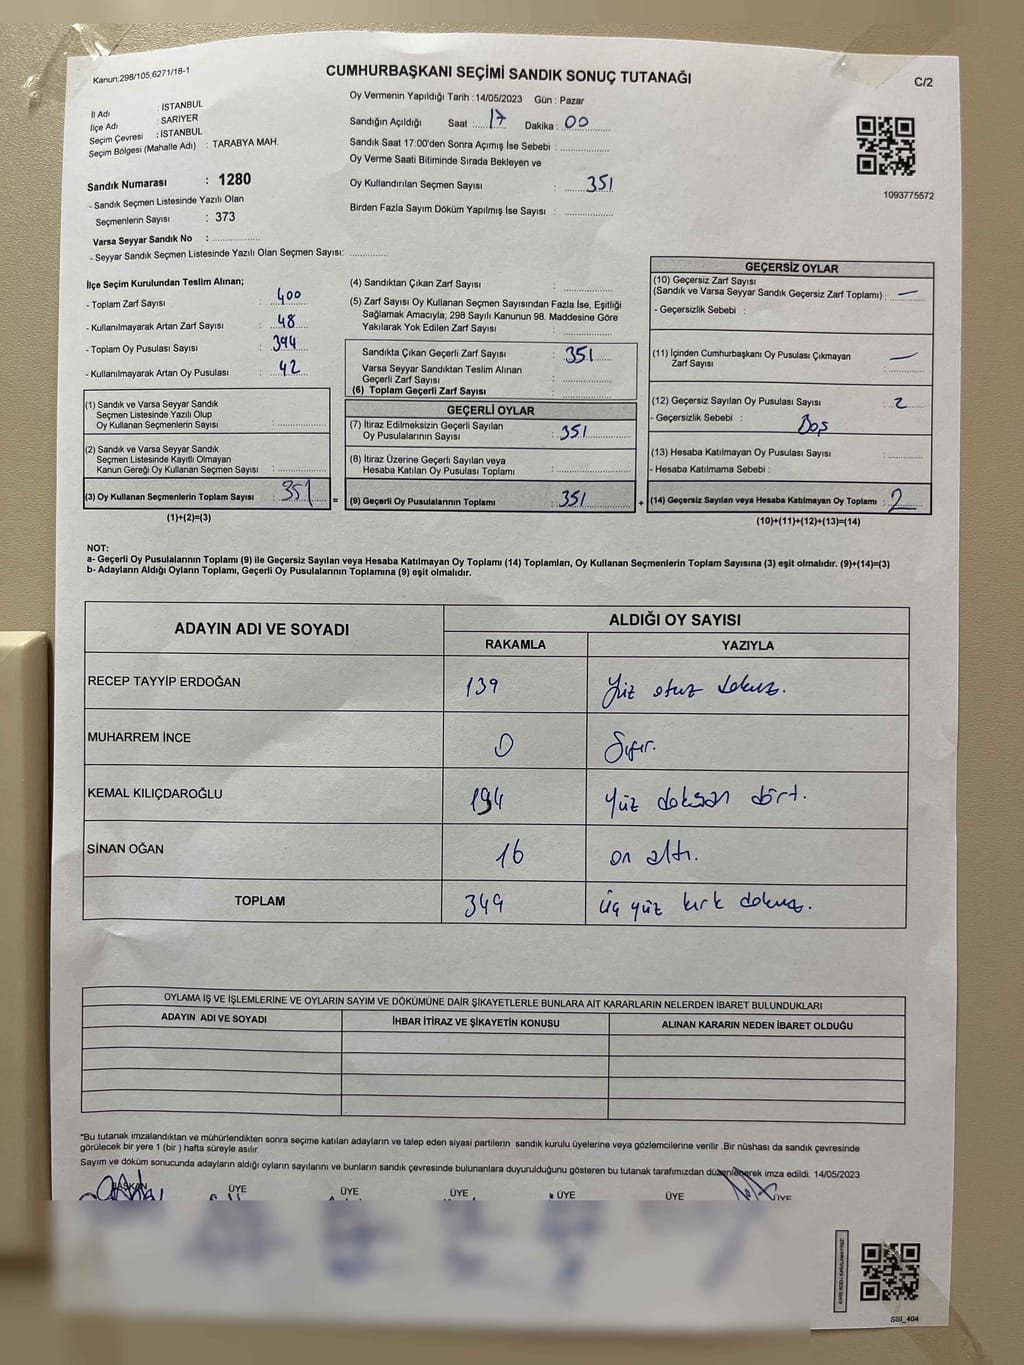 Kanun;298/105;6271/18-1
CUMHURBAŞKANI SEÇİMİ SANDIK SONUÇ TUTANAĞI
C/2
İl Adı : İSTANBUL
İlçe Adı : SARIYER
Seçim Çevresi : İSTANBUL
Seçim Bölgesi (Mahalle Adı) : TARABYA MAH.
Sandık Numarası : 1280
- Sandık Seçmen Listesinde Yazılı Olan
Seçmenlerin Sayısı : 373
Varsa Seyyar Sandık No :
- Seyyar Sandık Seçmen Listesinde Yazılı Olan Seçmen Sayısı:
Oy Vermenin Yapıldığı Tarih : 14/05/2023 Gün : Pazar
Sandığın Açıldığı Saat : 17 Dakika : 00
Sandık Saat 17:00'den Sonra Açımış İse Sebebi :
Oy Verme Saati Bitiminde Sırada Bekleyen ve
Oy Kullandırılan Seçmen Sayısı : 351
Birden Fazla Sayım Döküm Yapılmış İse Sayısı :
1093775572
İlçe Seçim Kurulundan Teslim Alınan;
- Toplam Zarf Sayısı : 400
- Kullanılmayarak Artan Zarf Sayısı : 48
- Toplam Oy Pusulası Sayısı : 394
- Kullanılmayarak Artan Oy Pusulası : 42
(1) Sandık ve Varsa Seyyar Sandık
Seçmen Listesinde Yazılı Olup
Oy Kullanan Seçmenlerin Sayısı :
(2) Sandık ve Varsa Seyyar Sandık
Seçmen Listesinde Kayıtlı Olmayan
Kanun Gereği Oy Kullanan Seçmen Sayısı :
(3) Oy Kullanan Seçmenlerin Toplam Sayısı : 351
(1)+(2)=(3)
=
(4) Sandıktan Çıkan Zarf Sayısı :
(5) Zarf Sayısı Oy Kullanan Seçmen Sayısından Fazla İse, Eşitliği
Sağlamak Amacıyla; 298 Sayılı Kanunun 98. Maddesine Göre
Yakılarak Yok Edilen Zarf Sayısı :
Sandıkta Çıkan Geçerli Zarf Sayısı : 351
Varsa Seyyar Sandıktan Teslim Alınan
Geçerli Zarf Sayısı :
(6) Toplam Geçerli Zarf Sayısı :
GEÇERLİ OYLAR
(7) İtiraz Edilmeksizin Geçerli Sayılan
Oy Pusulalarının Sayısı : 351
(8) İtiraz Üzerine Geçerli Sayılan veya
Hesaba Katılan Oy Pusulası Toplamı :
(9) Geçerli Oy Pusulalarının Toplamı : 351
+
GEÇERSİZ OYLAR
(10) Geçersiz Zarf Sayısı
(Sandık ve Varsa Seyyar Sandık Geçersiz Zarf Toplamı) : —
- Geçersizlik Sebebi :
(11) İçinden Cumhurbaşkanı Oy Pusulası Çıkmayan
Zarf Sayısı : —
(12) Geçersiz Sayılan Oy Pusulası Sayısı : 2
- Geçersizlik Sebebi : Boş
(13) Hesaba Katılmayan Oy Pusulası Sayısı :
- Hesaba Katılmama Sebebi :
(14) Geçersiz Sayılan veya Hesaba Katılmayan Oy Toplamı : 2
(10)+(11)+(12)+(13)=(14)
NOT:
a- Geçerli Oy Pusulalarının Toplamı (9) ile Geçersiz Sayılan veya Hesaba Katılmayan Oy Toplamı (14) Toplamları, Oy Kullanan Seçmenlerin Toplam Sayısına (3) eşit olmalıdır. (9)+(14)=(3)
b- Adayların Aldığı Oyların Toplamı, Geçerli Oy Pusulalarının Toplamına (9) eşit olmalıdır.
ADAYIN ADI VE SOYADI
ALDIĞI OY SAYISI
RAKAMLA YAZIYLA
RECEP TAYYİP ERDOĞAN 139 Yüz otuz dokuz.
MUHARREM İNCE 0 Sıfır.
KEMAL KILIÇDAROĞLU 194 yüz doksan dört.
SİNAN OĞAN 16 on altı.
TOPLAM 349 üç yüz kırk dokuz.
OYLAMA İŞ VE İŞLEMLERİNE VE OYLARIN SAYIM VE DÖKÜMÜNE DAİR ŞİKAYETLERLE BUNLARA AİT KARARLARIN NELERDEN İBARET BULUNDUKLARI
ADAYIN ADI VE SOYADI İHBAR İTİRAZ VE ŞİKAYETİN KONUSU ALINAN KARARIN NEDEN İBARET OLDUĞU
"Bu tutanak imzalandıktan ve mühürlendikten sonra seçime katılan adayların ve talep eden siyasi partilerin sandık kurulu üyelerine veya gözlemcilerine verilir .Bir nüshası da sandık çevresinde
görülecek bir yere 1 (bir ) hafta süreyle asılır.
Sayım ve döküm sonucunda adayların aldığı oyların sayılarını ve bunların sandık çevresinde bulunanlara duyurulduğunu gösteren bu tutanak tarafımızdan düzenlenerek imza edildi. 14/05/2023
BAŞKAN ÜYE ÜYE ÜYE ÜYE ÜYE ÜYE
SSI_404